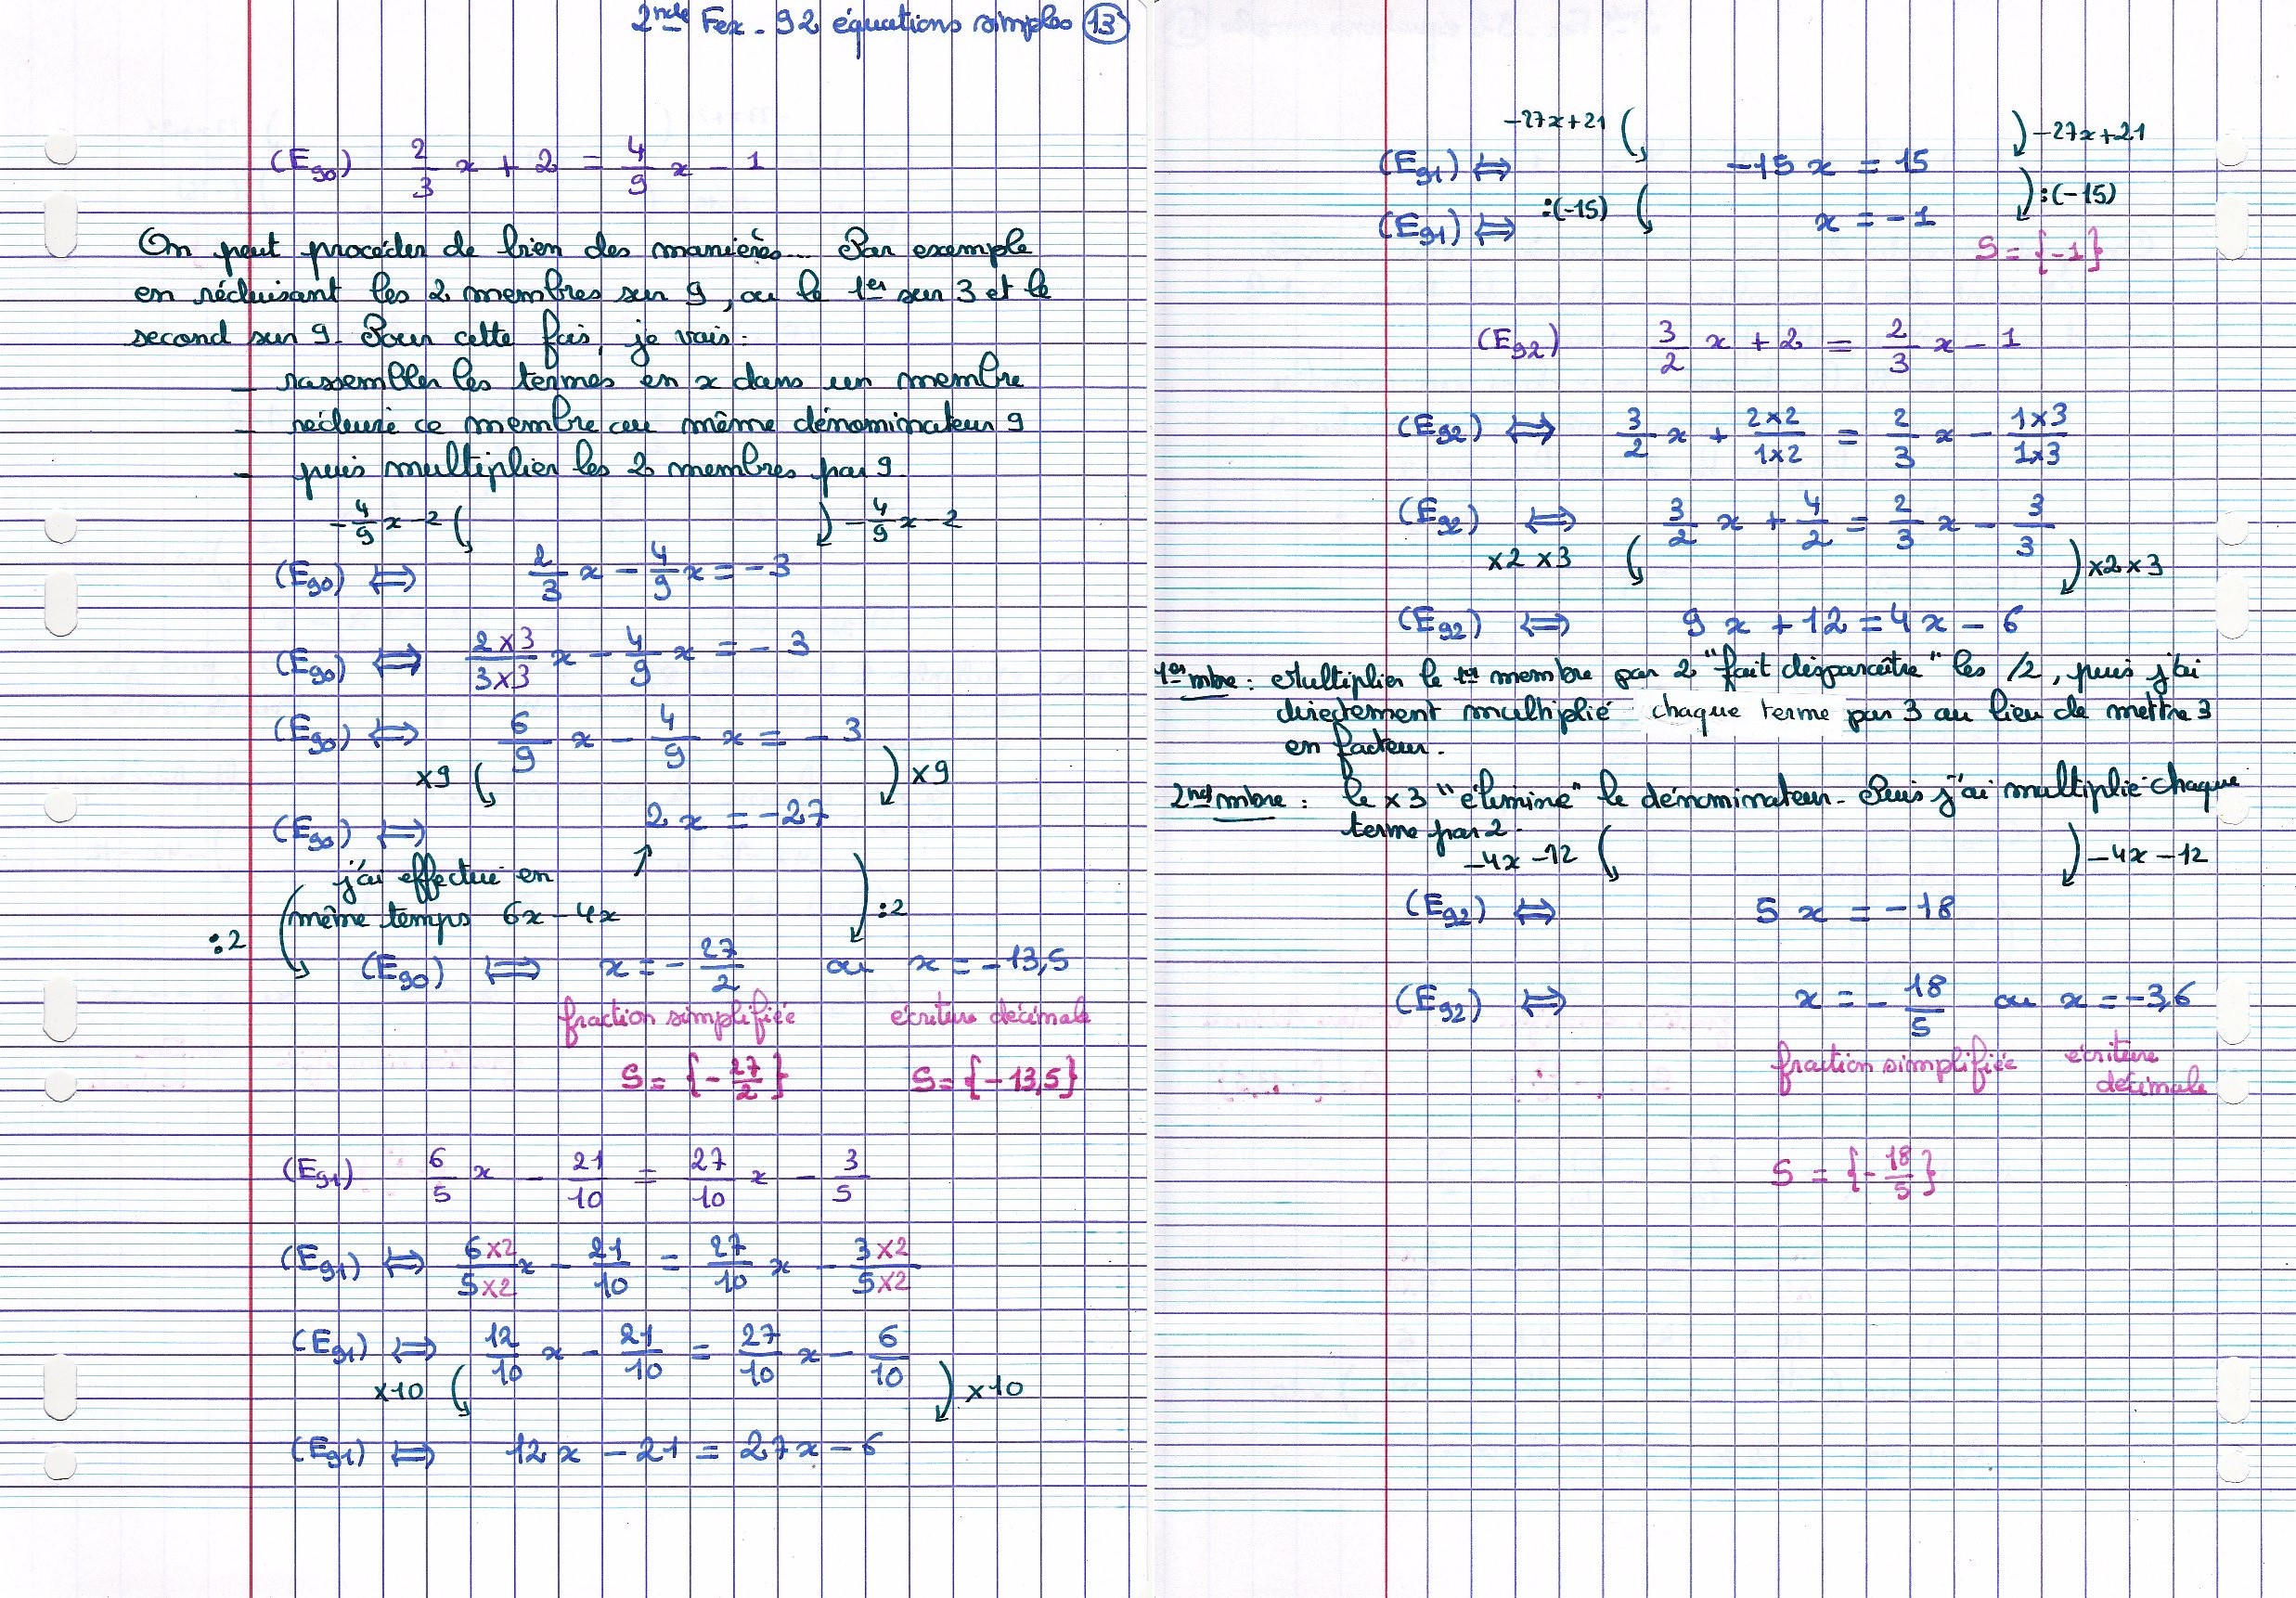 2nde Fex - 92 équations simples 13
(E90) 2/3 x + 2 = 4/9 x - 1
On peut procéder de bien des manières... Par exemple
en réduisant les 2 membres sur 9, ou le 1er sur 3 et le
second sur 9. Pour cette fois, je vais :
- rassembler les termes en x dans un membre
- réduire ce membre au même dénominateur 9
- puis multiplier les 2 membres par 9.
- 4/9 x - 2 - 4/9 x - 2
(E90) ⟺ 2/3 x - 4/9 x = - 3
(E90) ⟺ 2×3/3×3 x - 4/9 x = - 3
(E90) ⟺ 6/9 x - 4/9 x = - 3
×9 ×9
(E90) ⟺ 2x = -27
j'ai effectué en
même temps 6x - 4x
:2 :2
(E90) ⟺ x = - 27/2 ou x = - 13,5
fraction simplifiée écriture décimale
S = {- 27/2} S = {- 13,5}
(E91) 6/5 x - 21/10 = 27/10 x - 3/5
(E91) ⟺ 6×2/5×2 x - 21/10 = 27/10 x - 3×2/5×2
(E91) ⟺ 12/10 x - 21/10 = 27/10 x - 6/10
×10 ×10
(E91) ⟺ 12x - 21 = 27x - 6
-27x+21 -27x+21
(E91) ⟺ -15x = 15
:(-15) :(-15)
(E91) ⟺ x = -1
S = {-1}
(E92) 3/2 x + 2 = 2/3 x - 1
(E92) ⟺ 3/2 x + 2×2/1×2 = 2/3 x - 1×3/1×3
(E92) ⟺ 3/2 x + 4/2 = 2/3 x - 3/3
×2 ×3 ×2 ×3
(E92) ⟺ 9x + 12 = 4x - 6
1er mbre : Multiplier le 1er membre par 2 "fait disparaître" les /2, puis j'ai
directement multiplié chaque terme par 3 au lieu de mettre 3
en facteur.
2nd mbre : le ×3 "élimine" le dénominateur. Puis j'ai multiplié chaque
terme par 2.
-4x -12 -4x -12
(E92) ⟺ 5x = -18
(E92) ⟺ x = - 18/5 ou x = -3,6
fraction simplifiée écriture
décimale
S = {- 18/5}